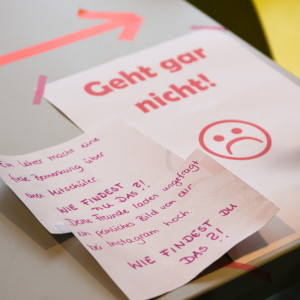 Geht gar
nicht!
Ein Lehrer macht eine
fiese Bemerkung über
einen Mitschüler
WIE FINDEST
DU DAS?!
Deine Freunde laden ungefragt
ein peinliches Bild von dir
bei Instagram hoch
WIE FINDEST DU
DAS?!